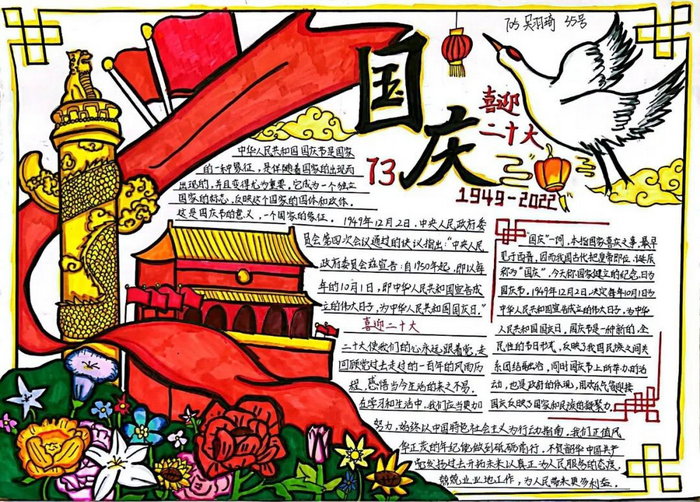 705 吴羽琦 35号
国庆
喜迎
二十大
73
1949-2022
中华人民共和国国庆节是国家
的一种象征，是伴随着国家的出现而
出现的，并且变得尤为重要，它成为一个独立
国家的标志，反映这个国家的国体和政体。
这是国庆节的意义，一个国家的象征。
1949年12月2日，中央人民政府委
员会第四次会议通过的决议指出："中央人民
政府委员会兹宣告：自1950年起，即以每
年的10月1日，即中华人民共和国宣告成
立的伟大日子，为中华人民共和国国庆日。"
喜迎二十大
二十大使我们的心永远跟着党，走
回顾党过去走过的一百年的风雨历
程，感悟当今生活的来之不易。
在学习和生活中，我们应当更加
努力，始终以中国特色社会主义为行动指南，我们正值风
华正茂的年纪，能做到砥砺前行，不负韶华 中国共产
为人民服务的态度，
兢兢业业地工作，为人民带来更多利益。
"国庆"一词，本指国家喜庆之事，最早
见于西晋。因而我国古代把皇帝即位、诞辰
称为"国庆"。今天称国家建立的纪念日为
国庆节。1949年12月2日，决定每年10月1日为
中华人民共和国宣告成立的伟大日子，为中华
人民共和国国庆日。国庆节是一种新的、全
民性的节日形式，反映了我国民族之间关
系团结融洽，同时国庆节上所举办的活
动，也是政府的体现，用欢乐气氛迎接
国庆反映了国家和民族的凝聚力。